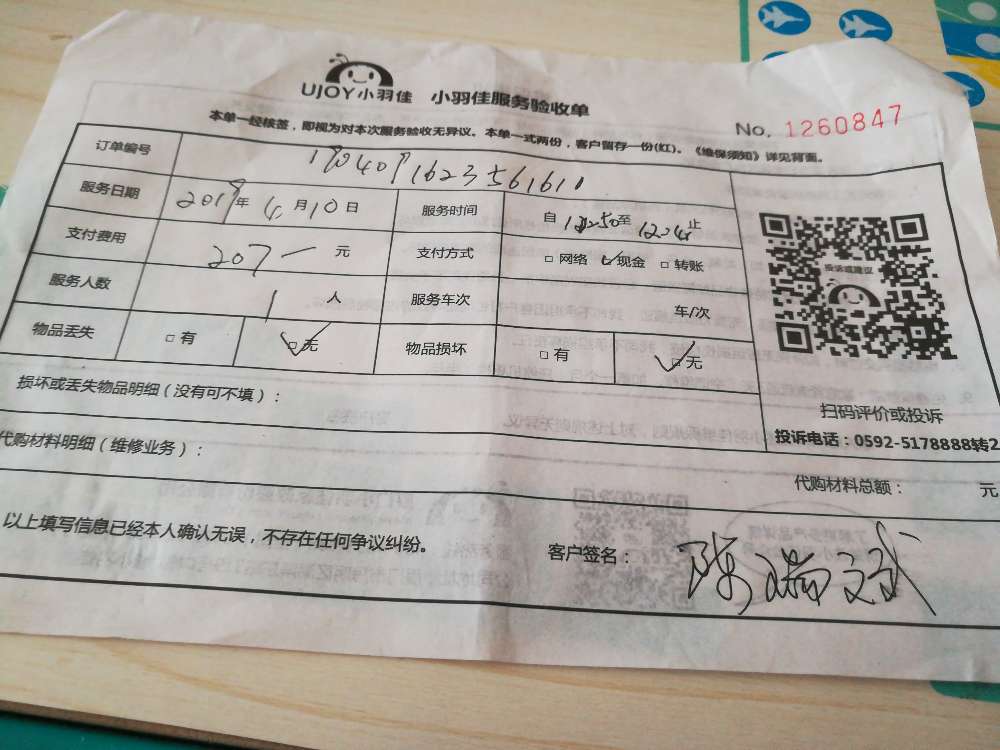 UJOY小羽佳 小羽佳服务验收单
No. 1260847
本单一经核签，即视为对本次服务验收无异议。本单一式两份，客户留存一份(红)。《维保须知》详见背面。
订单编号
服务日期 2019年 4月10日 服务时间 自 至 止
支付费用 207一 元 支付方式 □网络 ☑现金 □转账
服务人数 1 人 服务车次 车/次
物品丢失 □有 ☑无 物品损坏 □有 ☑无
投诉或建议
损坏或丢失物品明细（没有可不填）：
扫码评价或投诉
投诉电话：0592-5178888转2
代购材料明细（维修业务）：
代购材料总额： 元
以上填写信息已经本人确认无误，不存在任何争议纠纷。
客户签名： 陈瑞文